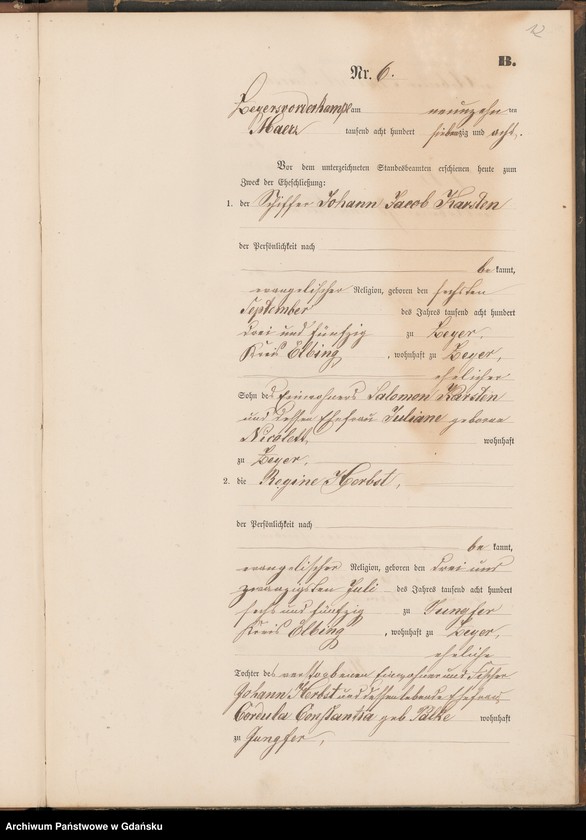 12
B.
Nr. 6.
Zeyersvorderkampe am neunzehn ten
Maerz tausend acht hundert siebenzig und acht.
Vor dem unterzeichneten Standesbeamten erschienen heute zum
Zweck der Eheschließung:
1. der Schiffer Johann Jacob Karsten
der Persönlichkeit nach
be kannt,
evangelischer Religion, geboren den sechsten
September des Jahres tausend acht hundert
drei und fünfzig zu Zeyer,
Kreis Elbing, wohnhaft zu Zeyer,
ehelicher
Sohn des Einwohners Salomon Karsten
und dessen Ehefrau Juliane geborne
wohnhaft
zu Zeyer.
2. die Regine Herbst,
der Persönlichkeit nach
be kannt,
evangelischer Religion, geboren den drei und
zwanzigsten Juli des Jahres tausend acht hundert
sechs und fünfzig zu Jungfer
Kreis Elbing, wohnhaft zu Zeyer,
eheliche
Tochter des verstorbenen Einwohner und Fischer
Johann Herbst und dessen lebende Ehefrau
Cordula Constantia geb. wohnhaft
zu Jungfer,
Archiwum Państwowe w Gdańsku